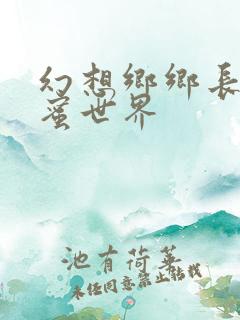 幻想鄉鄉長
蜜世界
池有荷華
未经同意禁止转载